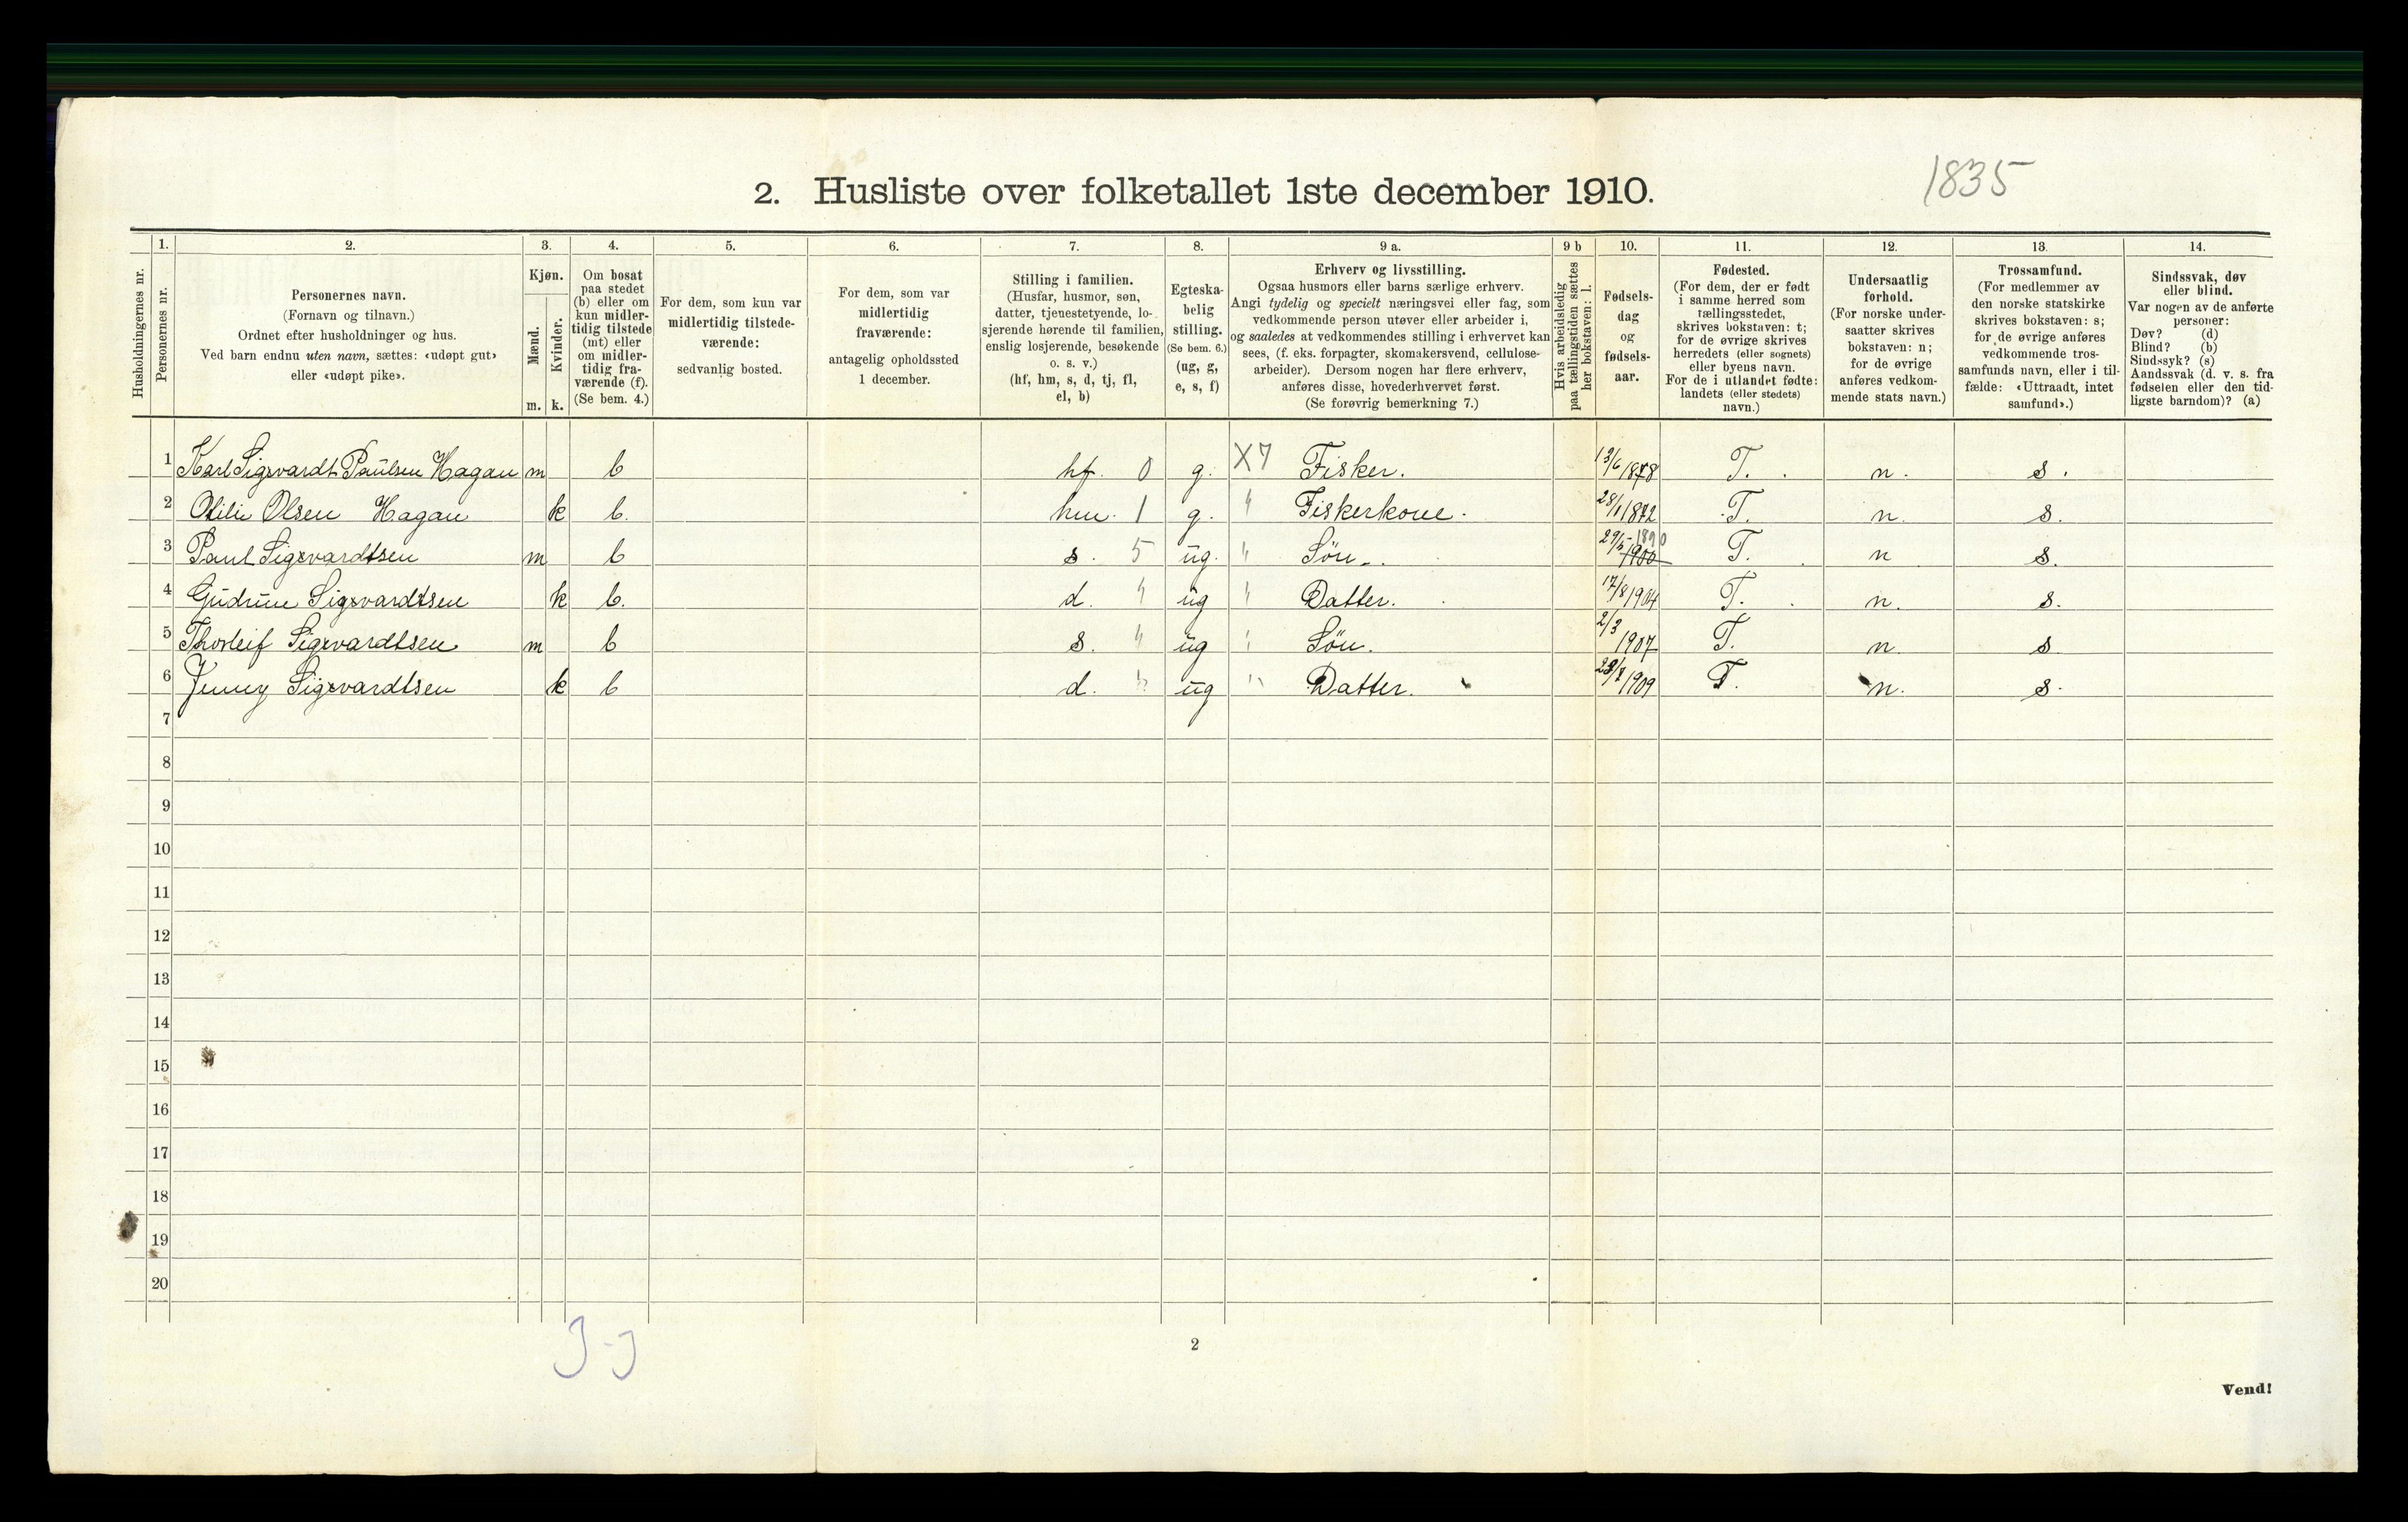 1835
2. Husliste over folketallet 1ste december 1910.
1. 2. 3. 4. 5. 6. 7. 8. 9 a. 9 b 10. 11. 12. 13. 14.
Husholdningernes nr.
Personernes nr.
Personernes navn.
(Fornavn og tilnavn.)
Ordnet efter husholdninger og hus.
Ved barn endnu uten navn, sættes: «udøpt gut»
eller «udøpt pike».
Kjøn.
Mænd.
Kvinder.
m. k.
Om bosat
paa stedet
(b) eller om
kun midler-
tidig tilstede
(mt) eller
om midler-
tidig fra-
værende (f).
(Se bem. 4.)
For dem, som kun var
midlertidig tilstede-
værende:
sedvanlig bosted.
For dem, som var
midlertidig
fraværende:
antagelig opholdssted
1 december.
Stilling i familien.
(Husfar, husmor, søn,
datter, tjenestetyende, lo-
sjerende hørende til familien,
enslig losjerende, besøkende
o. s. v.)
(hf, hm, s, d, tj, fl,
el, b)
Egteska-
belig
stilling.
(Se bem. 6.)
(ug, g,
e, s, f)
Erhverv og livsstilling.
Ogsaa husmors eller barns særlige erhverv.
Angi tydelig og specielt næringsvei eller fag, som
vedkommende person utøver eller arbeider i,
og saaledes at vedkommendes stilling i erhvervet kan
sees, (f. eks. forpagter, skomakersvend, cellulose-
arbeider). Dersom nogen har flere erhverv,
anføres disse, hovederhvervet først.
(Se forøvrig bemerkning 7.)
Hvis arbeidsledig
paa tællingstiden sættes
her bokstaven: l.
Fødsels-
dag
og
fødsels-
aar.
Fødested.
(For dem, der er født
i samme herred som
tællingsstedet,
skrives bokstaven: t;
for de øvrige skrives
herredets (eller sognets)
eller byens navn.
For de i utlandet fødte:
landets (eller stedets)
navn.)
Undersaatlig
forhold.
(For norske under-
saatter skrives
bokstaven: n;
for de øvrige
anføres vedkom-
mende stats navn.)
Trossamfund.
(For medlemmer av
den norske statskirke
skrives bokstaven: s;
for de øvrige anføres
vedkommende tros-
samfunds navn, eller i til-
fælde: «Uttraadt, intet
samfund».)
Sindssvak, døv
eller blind.
Var nogen av de anførte
personer:
Døv? (d)
Blind? (b)
Sindssyk? (s)
Aandssvak (d. v. s. fra
fødselen eller den tid-
ligste barndom)? (a)
1 Karl Sigsvardt Paulsen Hagan m b hf. 0 g. X7 Fisker. 13/6 1878 T. n. s.
2 Otilie Olsen Hagan k b. hm. 1 g. " Fiskerkone. 28/1 1872 T. n. s.
3 Paul Sigsvardtsen m b s. 5 ug. " Søn. 29/5 1890 1900 T. n s.
4 Gudrun Sigsvardtsen k b. d. " ug " Datter. 17/8 1904 T. n. s.
5 Thorleif Sigsvardtsen m b s. " ug " Søn. 2/3 1907 T. n. s
6 Jenny Sigsvardtsen k b d. " ug " Datter. 1909 T. n. s.
7
8
9
10
11
12
13
14
15
16
17
18
19
20
3-3
2
Vend!